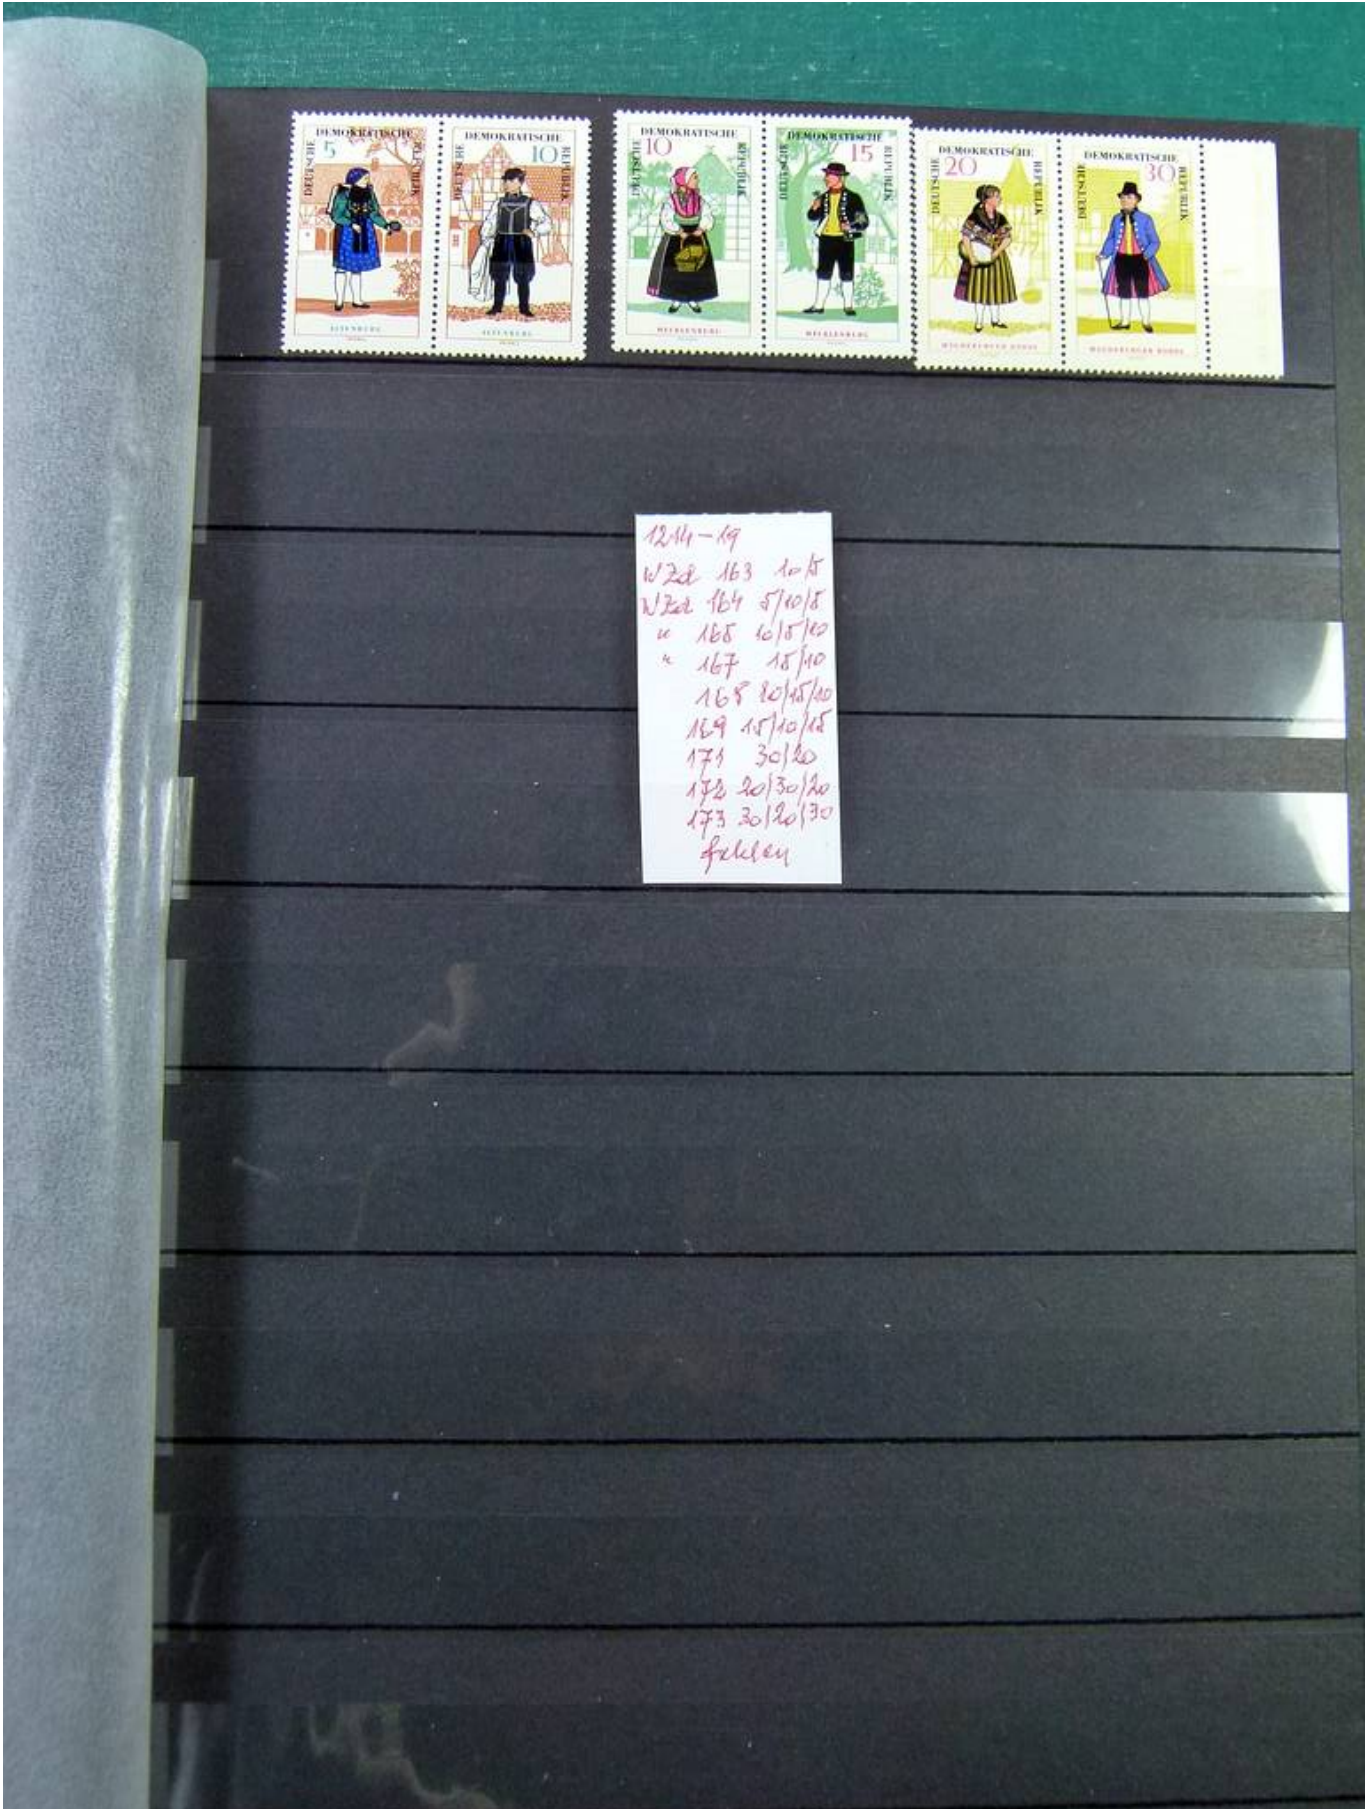 DEUTSCHE DEMOKRATISCHE REPUBLIK
5
ALTENBURG
DEUTSCHE DEMOKRATISCHE REPUBLIK
10
ALTENBURG
DEUTSCHE DEMOKRATISCHE REPUBLIK
10
MECKLENBURG
DEUTSCHE DEMOKRATISCHE REPUBLIK
15
MECKLENBURG
DEUTSCHE DEMOKRATISCHE REPUBLIK
20
MAGDEBURGER BÖRDE
DEUTSCHE DEMOKRATISCHE REPUBLIK
30
MAGDEBURGER BÖRDE
1214-19
WZd 163 10/5
WZd 164 5/10/5
" 165 10/5/10
" 167 15/10
168 10/15/10
169 15/10/15
171 30/20
172 20/30/20
173 30/20/30
fehlen